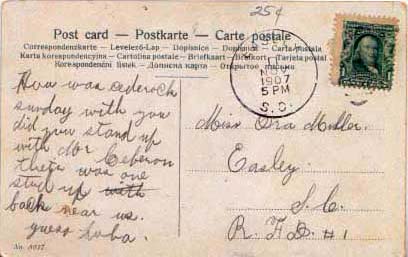 25¢
Post card — Postkarte — Carte postale
Correspondenzkarte — Levelező-Lap — Dopisnice — Dopisnica — Carta postale
Karta korespondencyjna — Cartolina postale — Briefkaart — Brefkort — Tarjeta postal
Korespondenční lístek — Дописна карта — Открытое письмо
NOV
1907
5 PM
S.C.
How was
sunday with you
did you stand up
with Mr
there was one
stuck up with
back near us.
guess
Miss Ora Miller.
Easley.
S.C.
R.F.D. #1
No.